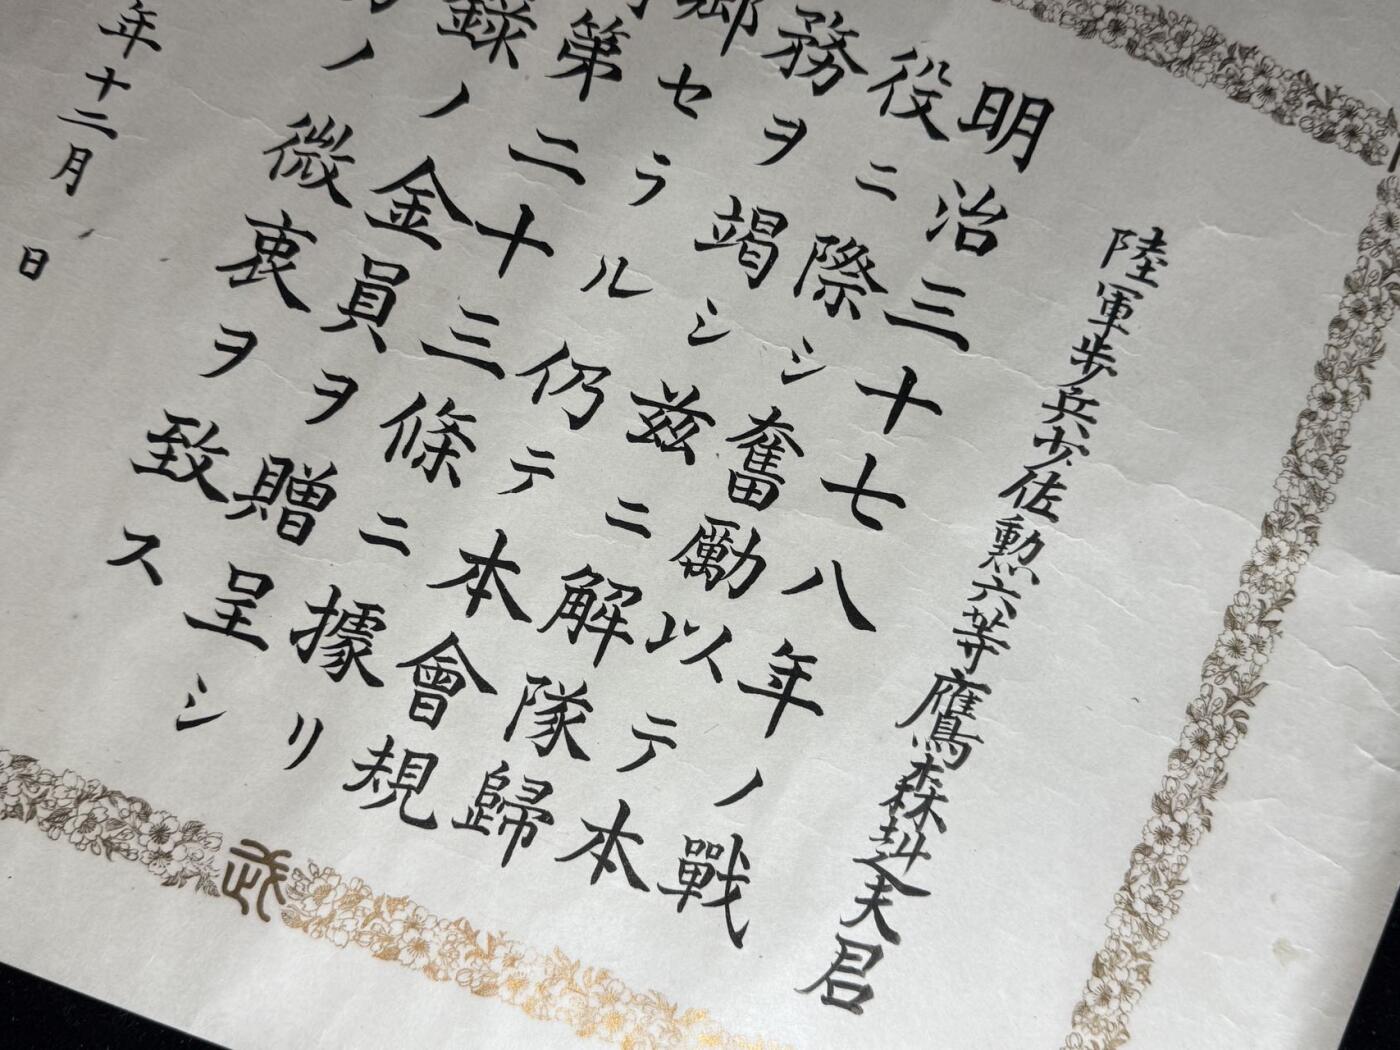 陸軍歩兵少佐勲六等鷹森赳夫君
明治三十七八年ノ戰
役ニ際シ奮勵以テ本
務ヲ竭シ茲ニ解隊歸
鄕セラル仍テ本會規
第二十三條ニ據リ
錄ノ金員ヲ贈呈シ
ノ微衷ヲ致ス
年十二月 日
武